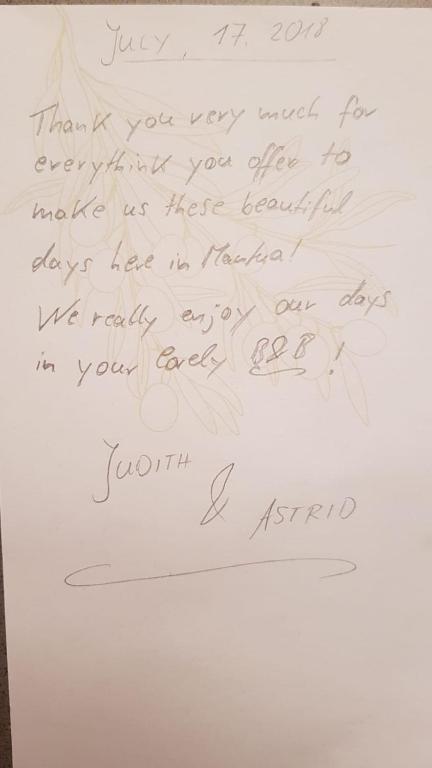 July, 17. 2018
Thank you very much for
everythink you offer to
make us these beautiful
days here in Mantua!
We really enjoy our days
in your lovely B&B !
JUDITH
&
ASTRID